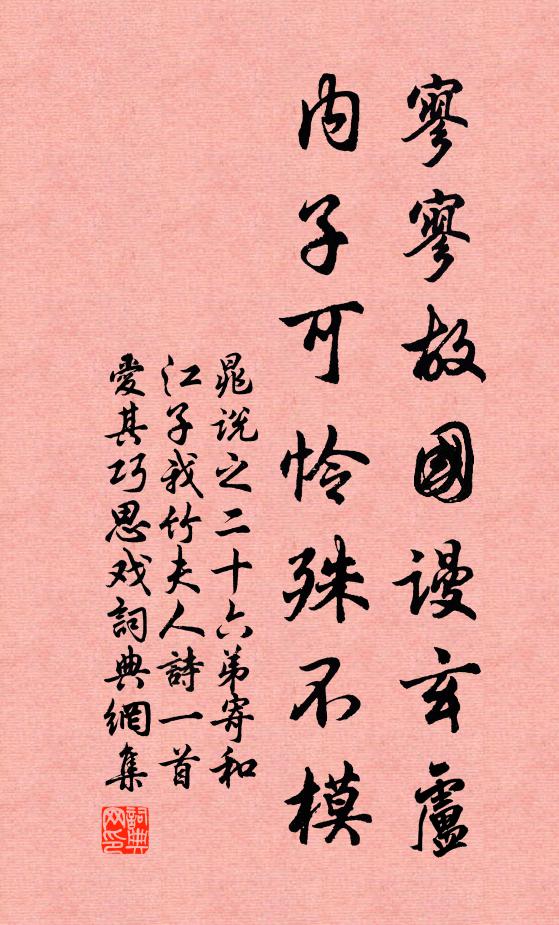 寥寥故國謾玄盧
内子可怜殊不模
晁说之二十六弟寄和
江子我竹夫人詩一首
愛其巧思戏詞典網集
詞典
网印